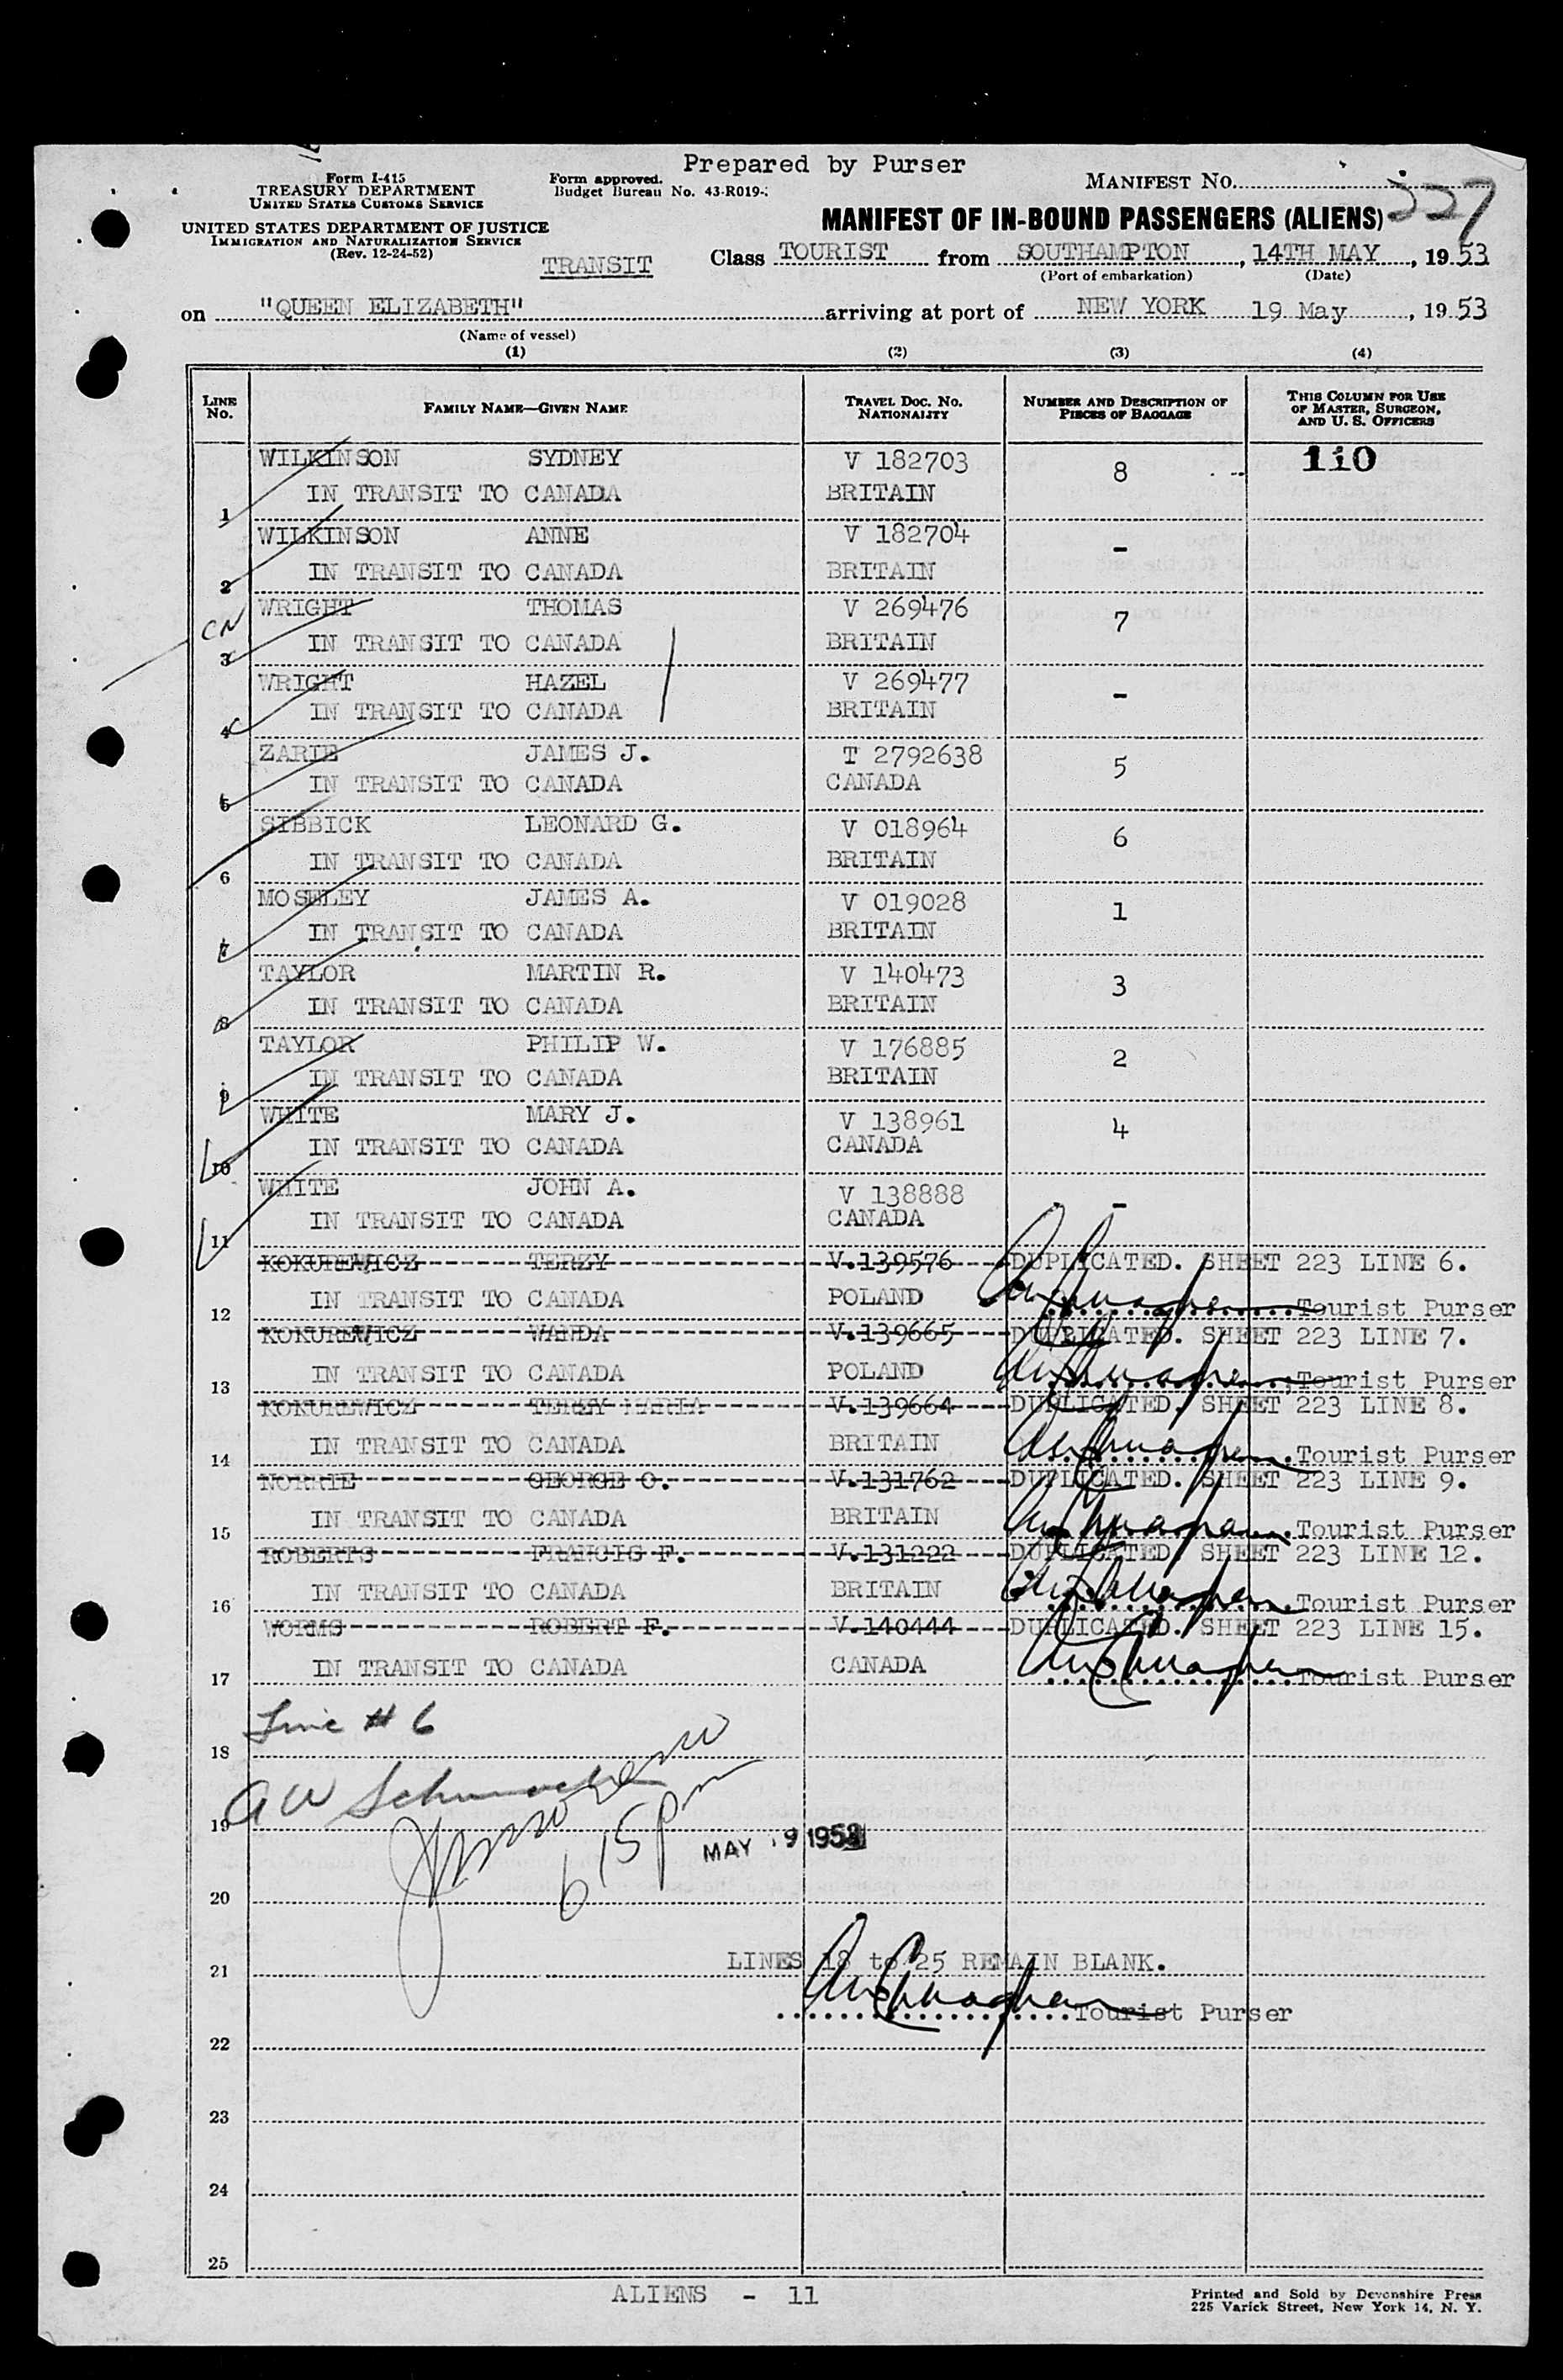 Prepared by Purser
Form I-415
TREASURY DEPARTMENT
UNITED STATES CUSTOMS SERVICE
UNITED STATES DEPARTMENT OF JUSTICE
IMMIGRATION AND NATURALIZATION SERVICE
(Rev. 12-24-52)
Form approved.
Budget Bureau No. 43-R019-
MANIFEST NO.
227
MANIFEST OF IN-BOUND PASSENGERS (ALIENS)
TRANSIT
Class TOURIST from SOUTHAMPTON, 14TH MAY, 1953
(Port of embarkation) (Date)
on "QUEEN ELIZABETH" arriving at port of NEW YORK 19 May, 1953
(Name of vessel)
(1) (2) (3) (4)
LINE No. FAMILY NAME—GIVEN NAME TRAVEL DOC. NO. NATIONALITY NUMBER AND DESCRIPTION OF PIECES OF BAGGAGE THIS COLUMN FOR USE OF MASTER, SURGEON, AND U. S. OFFICERS
WILKINSON SYDNEY V 182703 8 110
1 IN TRANSIT TO CANADA BRITAIN
WILKINSON ANNE V 182704 -
2 IN TRANSIT TO CANADA BRITAIN
CN
WRIGHT THOMAS V 269476 7
3 IN TRANSIT TO CANADA BRITAIN
WRIGHT HAZEL V 269477 -
4 IN TRANSIT TO CANADA BRITAIN
ZARIE JAMES J. T 2792638 5
5 IN TRANSIT TO CANADA CANADA
SIBBICK LEONARD G. V 018964 6
6 IN TRANSIT TO CANADA BRITAIN
MOSELEY JAMES A. V 019028 1
7 IN TRANSIT TO CANADA BRITAIN
TAYLOR MARTIN R. V 140473 3
8 IN TRANSIT TO CANADA BRITAIN
TAYLOR PHILIP W. V 176885 2
9 IN TRANSIT TO CANADA BRITAIN
WHITE MARY J. V 138961 4
10 IN TRANSIT TO CANADA CANADA
WHITE JOHN A. V 138888 -
11 IN TRANSIT TO CANADA CANADA
KOKUREWICZ TERZY V.139576 DUPLICATED. SHEET 223 LINE 6.
12 IN TRANSIT TO CANADA POLAND Tourist Purser
KOKUREWICZ WANDA V.139665 DUPLICATED. SHEET 223 LINE 7.
13 IN TRANSIT TO CANADA POLAND Tourist Purser
KOKUREWICZ TERZY MARIA V.139664 DUPLICATED. SHEET 223 LINE 8.
14 IN TRANSIT TO CANADA BRITAIN Tourist Purser
NORRIE GEORGE O. V.131762 DUPLICATED. SHEET 223 LINE 9.
15 IN TRANSIT TO CANADA BRITAIN Tourist Purser
ROBERTS FRANCIS F. V.131222 DUPLICATED. SHEET 223 LINE 12.
16 IN TRANSIT TO CANADA BRITAIN Tourist Purser
WORMS ROBERT F. V.140444 DUPLICATED. SHEET 223 LINE 15.
17 IN TRANSIT TO CANADA CANADA Tourist Purser
Line # 6
18
AW
19
615 pm
MAY 19 195
20
LINES 18 to 25 REMAIN BLANK.
21
Tourist Purser
22
23
24
25
ALIENS - 11
Printed and Sold by Devonshire Press
225 Varick Street, New York 14, N. Y.